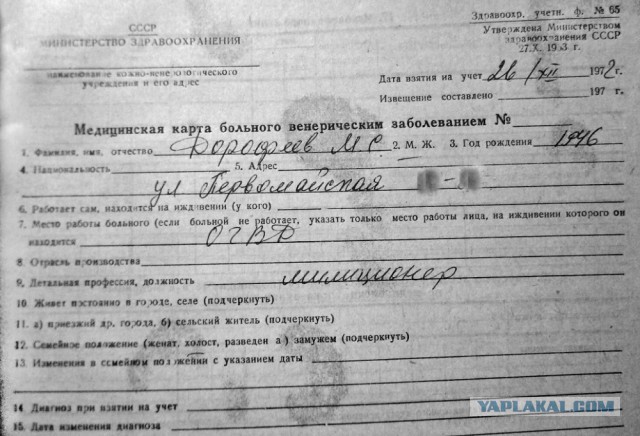 СССР
МИНИСТЕРСТВО ЗДРАВООХРАНЕНИЯ
наименование кожно-венерологического
учреждения и его адрес
Здравоохр. учетн. ф. № 65
Утверждена Министерством
здравоохранения СССР
27.X. 1953 г.
Дата взятия на учет 26/XII 1972 г.
Извещение составлено 197 г.
Медицинская карта больного венерическим заболеванием №
1. Фамилия, имя, отчество Дорофеев М С 2. М. Ж. 3. Год рождения 1946
4. Национальность 5. Адрес
ул Первомайская -
6. Работает сам, находится на иждивении (у кого)
7. Место работы больного (если больной не работает, указать только место работы лица, на иждивении которого он
находится ОГВД
8. Отрасль производства
9. Детальная профессия, должность милиционер
10. Живет постоянно в городе, селе (подчеркнуть)
11. а) приезжий др. города, б) сельский житель (подчеркнуть)
12. Семейное положение (женат, холост, разведен а ) замужем (подчеркнуть)
13. Изменения в семейном положении с указанием даты
14. Диагноз при взятии на учет
15. Дата изменения диагноза
YAPLAKAL.COM